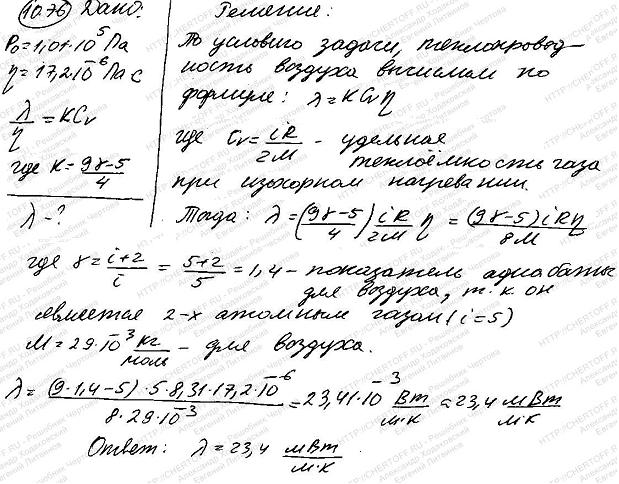 10.76 Дано:
P₀=1,01·10⁵ Па
η=17,2·10⁻⁶ Па с
λ/η = KCv
где K = (9γ-5)/4
λ - ?
Решение:
По условию задачи, теплопровод-
ность воздуха вычислим по
формуле: λ = KCvη
где Cv = iR/2M - удельная
теплоёмкость газа
при изохорном нагревании.
Тогда: λ = ((9γ-5)/4) iR/2M η = (9γ-5)iRη/8M
где γ = (i+2)/i = (5+2)/5 = 1,4 - показатель адиабаты
для воздуха, т.к. он
является 2-х атомным газом (i=5)
M = 29·10⁻³ кг/моль - для воздуха.
λ = (9·1,4-5)·5·8,31·17,2·10⁻⁶/8·29·10⁻³ = 23,41·10⁻³ Вт/м·К = 23,4 мВт/м·К
Ответ: λ = 23,4 мВт/м·К